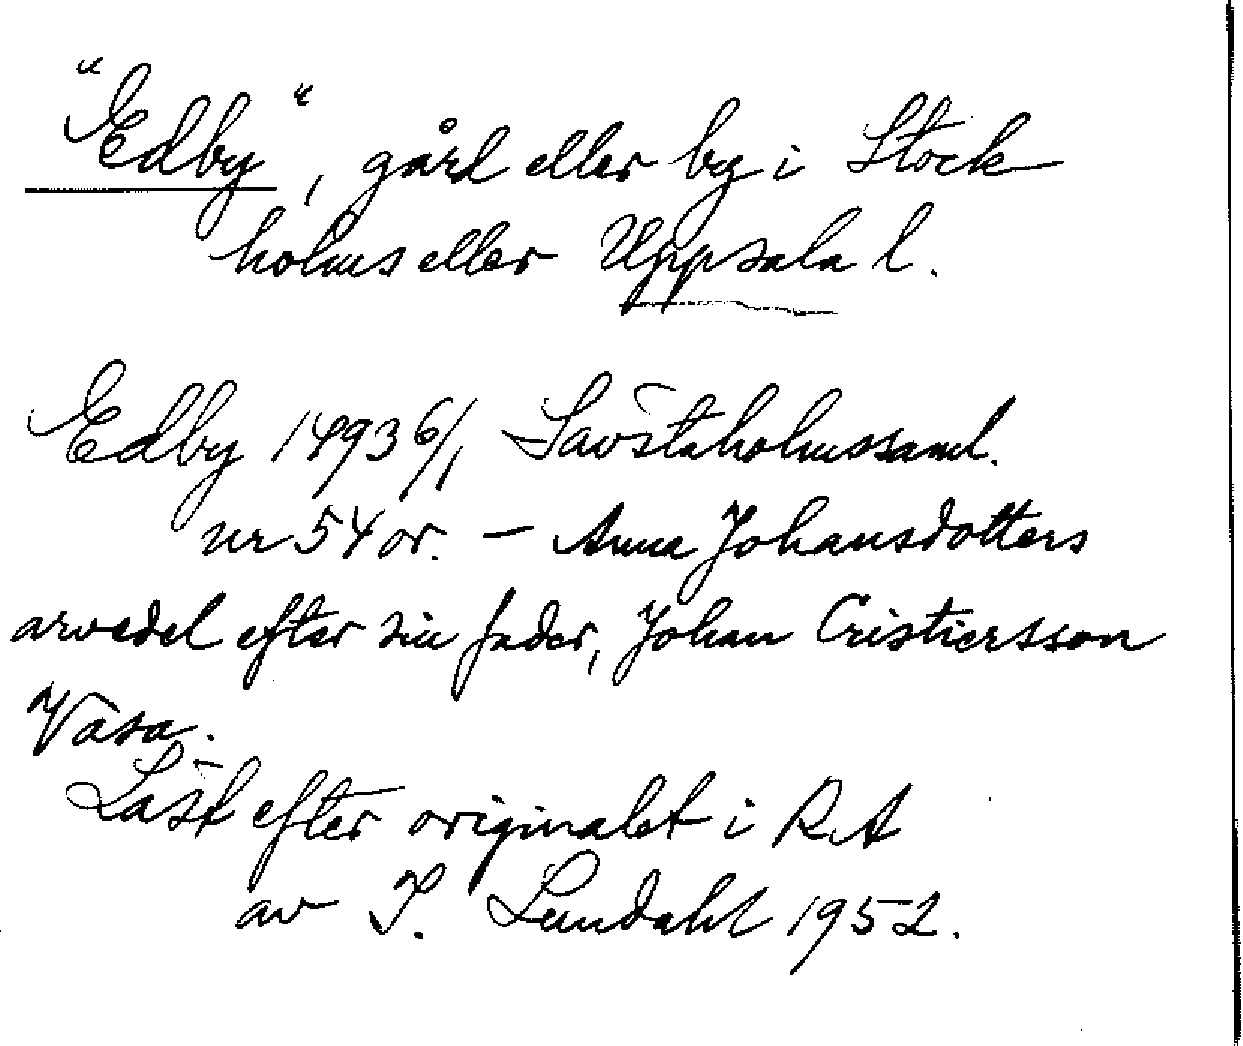 "Edby", gård eller by i Stock
holms eller Uppsala l.
Edby 1493 6/1 Sävstaholmssaml.
nr 54 or. – Anna Johansdotters
arvedel efter sin fader, Johan Cristiersson
Vasa.
Läst efter originalet i RA
av I. Lundahl 1952.